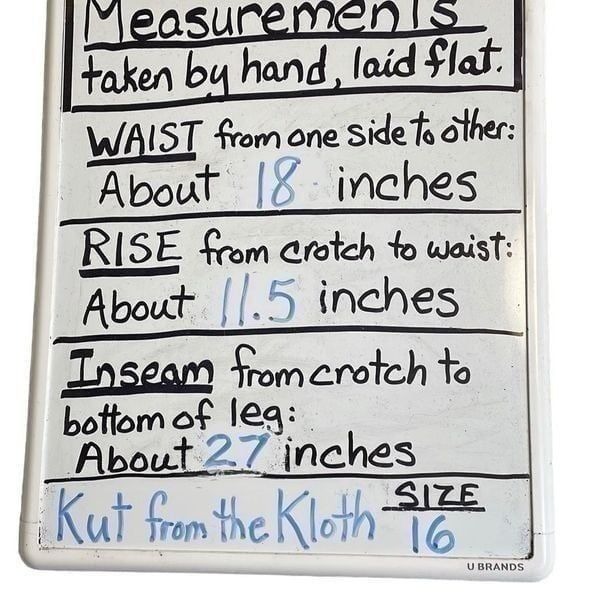 Measurements
taken by hand, laid flat.
WAIST from one side to other:
About 18 inches
RISE from crotch to waist:
About 11.5 inches
Inseam from crotch to
bottom of leg:
About 27 inches
Kut from the Kloth SIZE 16
U BRANDS